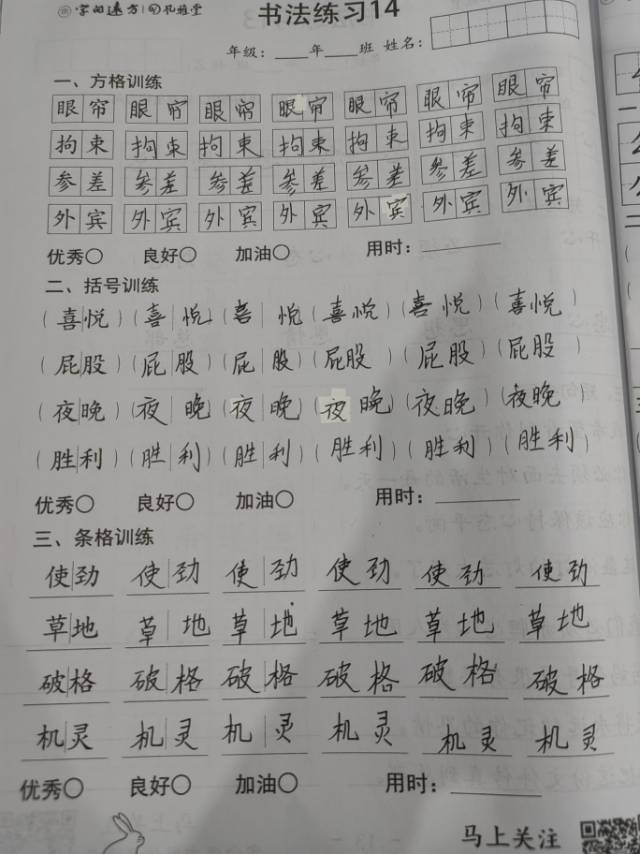 字如远方 书法练习14
年级：____年____班 姓名：
一、方格训练
眼帘 眼帘 眼帘 眼帘 眼帘 眼帘 眼帘
拘束 拘束 拘束 拘束 拘束 拘束 拘束
参差 参差 参差 参差 参差 参差 参差
外宾 外宾 外宾 外宾 外宾 外宾 外宾
优秀○ 良好○ 加油○ 用时：________
二、括号训练
（喜悦）（喜悦）（喜悦）（喜悦）（喜悦）（喜悦）
（屁股）（屁股）（屁股）（屁股）（屁股）（屁股）
（夜晚）（夜晚）（夜晚）（夜晚）（夜晚）（夜晚）
（胜利）（胜利）（胜利）（胜利）（胜利）（胜利）
优秀○ 良好○ 加油○ 用时：________
三、条格训练
使劲 使劲 使劲 使劲 使劲 使劲
草地 草地 草地 草地 草地 草地
破格 破格 破格 破格 破格 破格
机灵 机灵 机灵 机灵 机灵 机灵
优秀○ 良好○ 加油○ 用时：________
马上关注